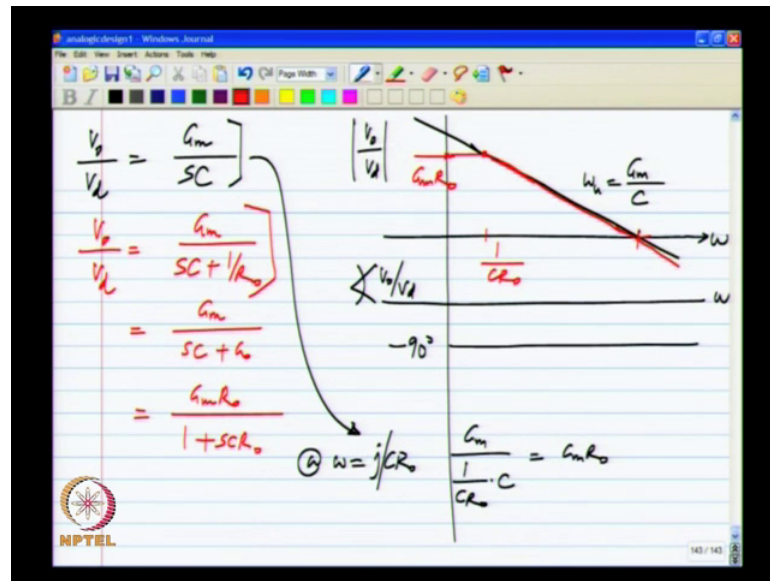 analogicdesign1 - Windows Journal
File Edit View Insert Actions Tools Help
Page Width
B I
V₀/V_d = G_m/SC ]
V₀/V_d = G_m/(SC + 1/R₀) ]
= G_m/(SC + G₀)
= G_mR₀/(1 + SCR₀)
|V₀/V_d|
G_mR₀
ω_u = G_m/C
ω
1/CR₀
∠V₀/V_d
ω
-90°
@ ω = j/CR₀ G_m/(1/CR₀ · C) = G_mR₀
NPTEL
143 / 143